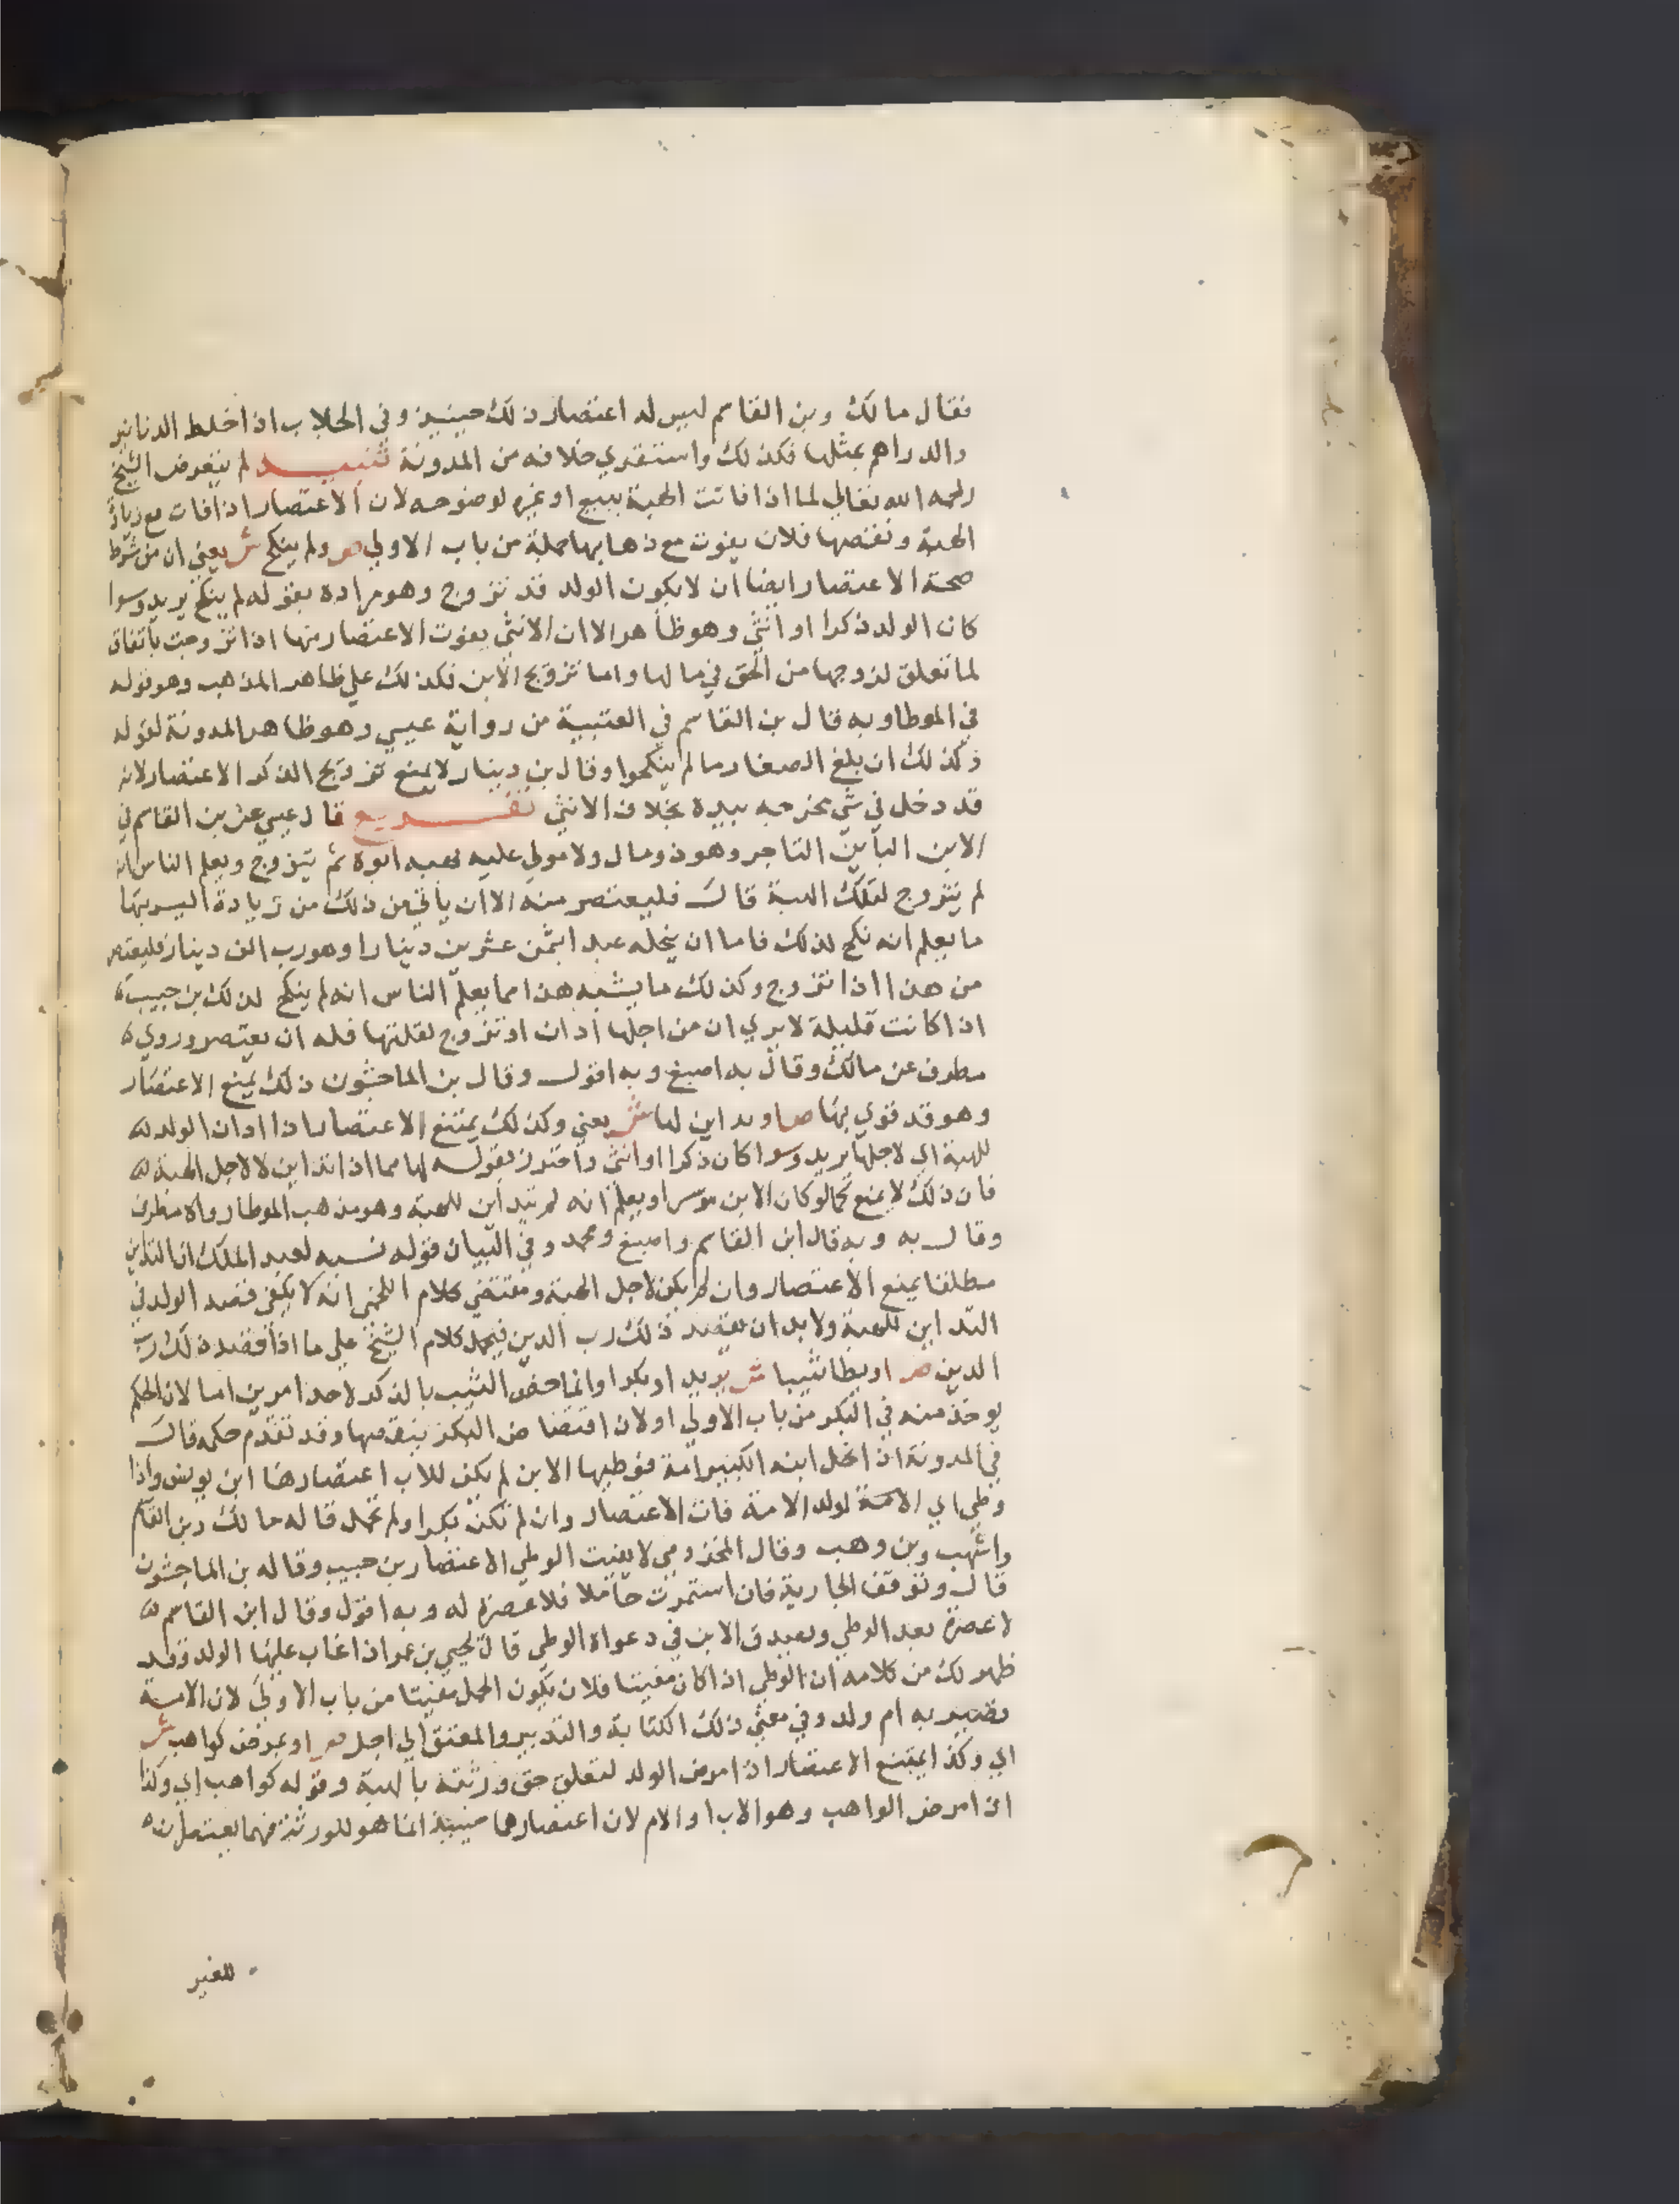 فقال مالك وبن القاسم ليس له اعتصار ذلك حينيذ وفي الجلاب اذا خلط الدنانير
والدراهم بمثلها فكذلك واستقري خلافه من المدونة تنبيه لم يتعرض الشيخ
رحمه الله تعالي لما اذا فاتت الهبة ببيع او غيره لوضوحه لان الاعتصار اذا فات مع زيادة
الهبة ونقصها فلان يفوت مع ذهابها جملة من باب الاولي ص ولم ينكح ش يعني ان من شرط
صحة الاعتصار ايضا ان لا يكون الولد قد تزوج وهو مراده بقوله لم ينكح يريد وسوا
كان الولد ذكرا او انثي وهو ظاهر الا ان الانثي يفوت الاعتصار منها اذا تزوجت باتفاق
لما تعلق لزوجها من الحق في مالها واما تزويج الابن فكذلك علي ظاهر المذهب وهو قوله
في الموطا وبه قال بن القاسم في العتبية من رواية عيسي وهو ظاهر المدونة لقوله
وكذلك ان بلغ الصغار ما لم ينكحوا وقال بن دينار لا يمنع تزويج الذكر الاعتصار لانه
قد دخل في شي مخرجه بيده بخلاف الانثي تفريع قال عيسي عن بن القاسم في
الابن الباين التاجر وهو ذو مال ولا مولي عليه يهبه ابوه ثم يتزوج ويعلم الناس انه
لم يتزوج لتلك الهبة قال فليعتصر منه الا ان ياتي من ذلك من زيادة اليسر بها
ما يعلم انه نكح لذلك فاما ان ينحله عبدا بثمن عشرين دينارا وهو رب الف دينار فليعتصر
من هذا اذا تزوج وكذلك ما يشبه هذا مما يعلم الناس انه لم ينكح لذلك بن حبيب
اذا كانت قليلة لا يري ان من اجلها ادان او تزوج لقلتها فله ان يعتصر وروي
مطرف عن مالك وقال به اصبغ وبه اقول وقال بن الماجشون ذلك يمنع الاعتصار
وهو قد قوي بها ص او يداين لها ش يعني وكذلك يمتنع الاعتصار اذا ادان الولد
للهبة اي لاجلها يريد وسوا كان ذكرا او انثي واحترز بقوله لها مما اذا تداين لا لاجل الهبة
فان ذلك لا يمنع كما لو كان الابن موسرا ويعلم انه لم يتداين للهبة وهو مذهب الموطا رواه مطرف
وقال به وبه قال ابن القاسم واصبغ ومحمد وفي البيان قوله نسبه لعبد الملك ان التداين
مطلقا يمنع الاعتصار وان لم يكن لاجل الهبة ومقتضي كلام اللخمي انه لا يكفي قصد الولد في
التداين للهبة ولا بد ان يقصد ذلك رب الدين فيحمل كلام الشيخ علي ما اذا قصد ذلك رب
الدين ص او يطا ثيبا ش يريد او بكرا وانما خص الثيب بالذكر لاحد امرين اما لان الحكم
يوخذ منه في البكر من باب الاولي او لان افتضاض البكر ينقصها وقد تقدم حكمه قال
في المدونة اذا نحل ابنه الكبير امة فوطيها الابن لم يكن للاب اعتصارها ابن يونس واذا
وطي اي الامة لولد الامة فات الاعتصار وان لم تكن بكرا ولم تحمل قاله مالك وبن القاسم
واشهب وبن وهب وقال المخزومي لا يفيت الوطي الاعتصار بن حبيب وقاله بن الماجشون
قال وتوقف الجارية فان استمرت حاملا فلا عصرة له وبه اقول وقال ابن القاسم
لا عصرة بعد الوطي ويصدق الابن في دعواه الوطي قال يحيي بن عمر اذا غاب عليها الولد فقد
ظهر لك من كلامه ان الوطي اذا كان مفيتا فلان يكون الحمل مفيتا من باب الاولي لان الامة
تصير به ام ولد وفي معني ذلك الكتابة والتدبير والمعتق الي اجل ص او يمرض كواهب ش
اي وكذا يمتنع الاعتصار اذا مرض الولد لتعلق حق ورثته بالهبة وقوله كواهب اي وكذا
اذا مرض الواهب وهو الاب او الام لان اعتصارهما حينيذ انما هو للورثة فهما يعتصران
للغير